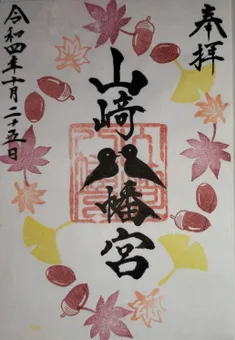 奉拝
山崎八幡宮
令和四年十月二十五日